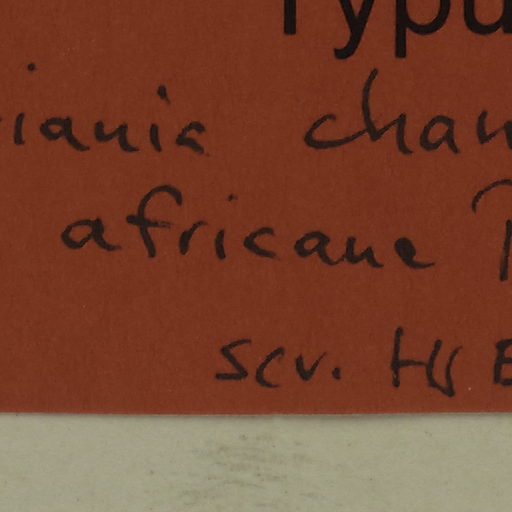 Typu
iania chan
africane
scr. HJ B